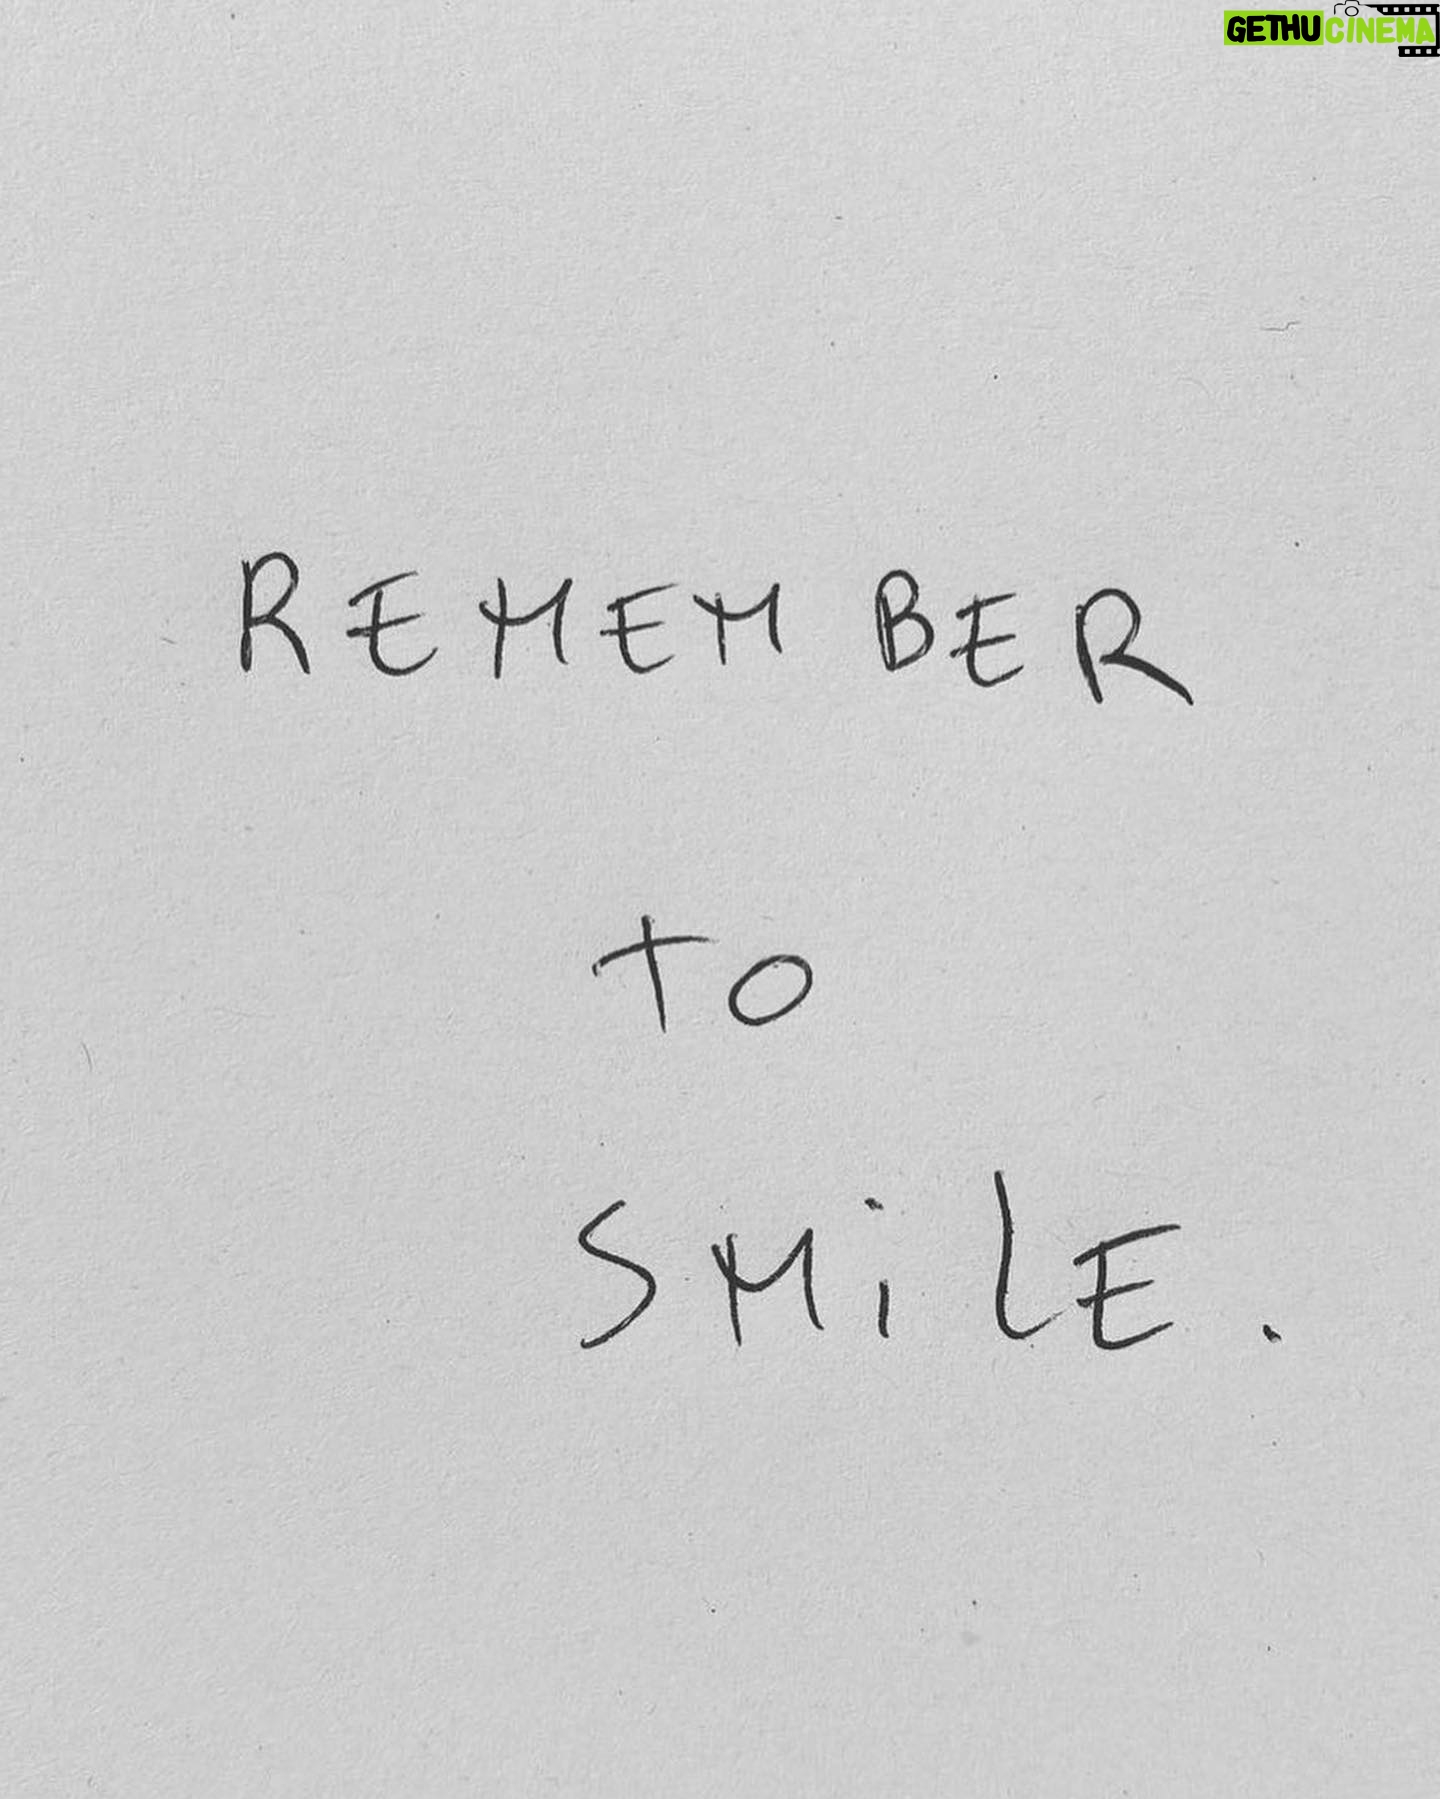 GETHUCINEMA
REMEMBER
TO
SMiLE.